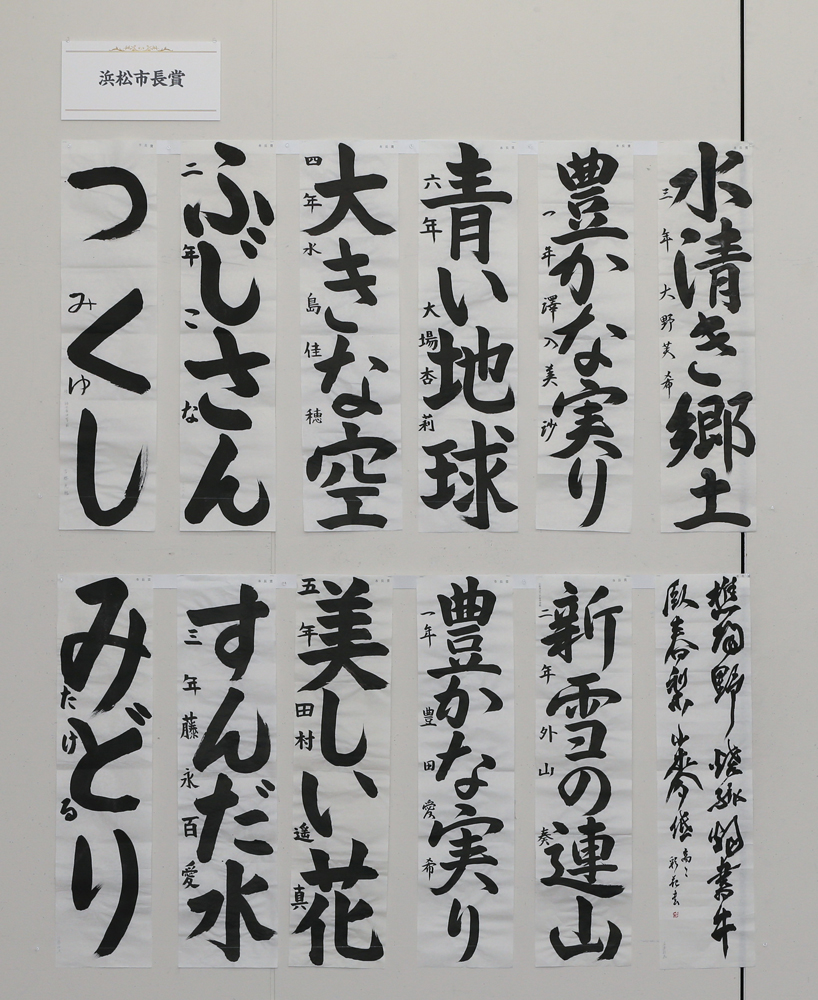 浜松市長賞
水清き郷土
三年 大野芙希
豊かな実り
一年 澤入美沙
青い地球
六年 大場杏莉
大きな空
四年 水島佳穂
ふじさん
二年 こな
つくし
みゆ
新雪の連山
二年 外山奏
豊かな実り
一年 豊田愛希
美しい花
五年 田村遥真
すんだ水
三年 藤永百愛
みどり
たける